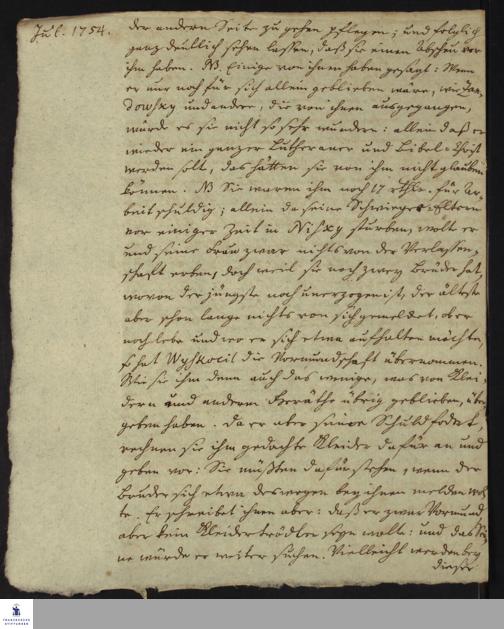 Jul. 1754.
der andern Seite zu gehen pflegen; und folglich
ganz deutlich sehen lassen, daß sie einen Abscheu vor
ihm haben. NB. Einige von ihnen haben gesagt: Wenn
er nur noch für sich allein geblieben wäre, wie Jan-
dowsky und andere, die von ihnen ausgegangen,
würde es sie nicht so sehr wundern: allein daß er
wieder ein ganzer Lutheraner und Bibel-Christ
werden solt, das hätten sie von ihm nicht glauben
können. NB Sie waren ihm noch 17 rthlr. für Ar-
beit schuldig; allein da seine Schwieger-Eltern
vor einiger Zeit in Nisky sturben, wolte er
und seine Frau zwar nichts von der Verlassen-
schaft erben, doch weil sie noch zwey Brüder hat,
wovon der jüngste noch unerzogen ist, der älteste
aber schon lange nichts von sich gemeldet, ob er
noch lebe und wo er sich etwa aufhalten möchte,
so hat Wyskocil die Vormundschaft übernommen.
Wie sie ihm denn auch das wenige, was von Klei-
dern und anderm Geräthe übrig geblieben, über-
geben haben. Da er aber seine Schuld fodert,
rechnen sie ihm gedachte Kleider dafür an und
geben vor: Sie müßten dafür stehen, wenn der
Bruder sich etwa deswegen bey ihnen melden wol-
te. Er schreibet ihnen aber: daß er zwar Vormund
aber kein Kleidertrödler seyn wolle: und das Sei-
ne würde er weiter suchen. Vielleicht werden bey
dieser
FRANCKESCHE
STIFTUNGEN